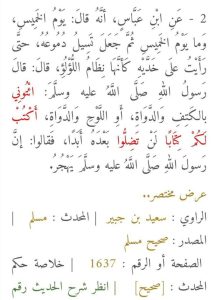 2 - عَنِ ابْنِ عَبَّاسٍ، أنَّهُ قالَ: يَوْمُ الخَمِيسِ،
وَما يَوْمُ الخَمِيسِ ثُمَّ جَعَلَ تَسِيلُ دُمُوعُهُ، حتَّى
رَأَيْتُ علَى خَدَّيْهِ كَأنَّهَا نِظَامُ اللُّؤْلُؤِ، قالَ: قالَ
رَسولُ اللهِ صَلَّى اللَّهُ عليه وَسلَّمَ: ائْتُونِي
بالكَتِفِ وَالدَّوَاةِ، أَوِ اللَّوْحِ وَالدَّوَاةِ، أَكْتُبْ
لَكُمْ كِتَابًا لَنْ تَضِلُّوا بَعْدَهُ أَبَدًا، فَقالوا: إنَّ
رَسولَ اللهِ صَلَّى اللَّهُ عليه وَسلَّمَ يَهْجُرُ.
عرض مختصر..
الراوي : سعيد بن جبير | المحدث : مسلم |
المصدر : صحيح مسلم
الصفحة أو الرقم : 1637 | خلاصة حكم
المحدث : [صحيح] | انظر شرح الحديث رقم